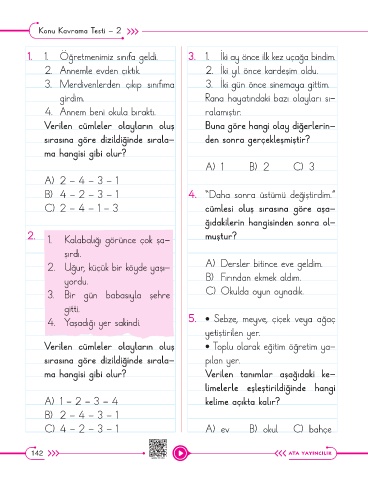 Konu Kavrama Testi – 2
1. 1. Öğretmenimiz sınıfa geldi.
2. Annemle evden çıktık.
3. Merdivenlerden çıkıp sınıfıma
girdim.
4. Annem beni okula bıraktı.
Verilen cümleler olayların oluş
sırasına göre dizildiğinde sırala-
ma hangisi gibi olur?
A) 2 – 4 – 3 – 1
B) 4 – 2 – 3 – 1
C) 2 – 4 – 1 – 3
2. 1. Kalabalığı görünce çok şa-
şırdı.
2. Uğur, küçük bir köyde yaşı-
yordu.
3. Bir gün babasıyla şehre
gitti.
4. Yaşadığı yer sakindi.
Verilen cümleler olayların oluş
sırasına göre dizildiğinde sırala-
ma hangisi gibi olur?
A) 1 – 2 – 3 – 4
B) 2 – 4 – 3 – 1
C) 4 – 2 – 3 – 1
3. 1. İki ay önce ilk kez uçağa bindim.
2. İki yıl önce kardeşim oldu.
3. İki gün önce sinemaya gittim.
Rana hayatındaki bazı olayları sı-
ralamıştır.
Buna göre hangi olay diğerlerin-
den sonra gerçekleşmiştir?
A) 1 B) 2 C) 3
4. "Daha sonra üstümü değiştirdim."
cümlesi oluş sırasına göre aşa-
ğıdakilerin hangisinden sonra ol-
muştur?
A) Dersler bitince eve geldim.
B) Fırından ekmek aldım.
C) Okulda oyun oynadık.
5. • Sebze, meyve, çiçek veya ağaç
yetiştirilen yer.
• Toplu olarak eğitim öğretim ya-
pılan yer.
Verilen tanımlar aşağıdaki ke-
limelerle eşleştirildiğinde hangi
kelime açıkta kalır?
A) ev B) okul C) bahçe
142
ATA YAYINCILIK